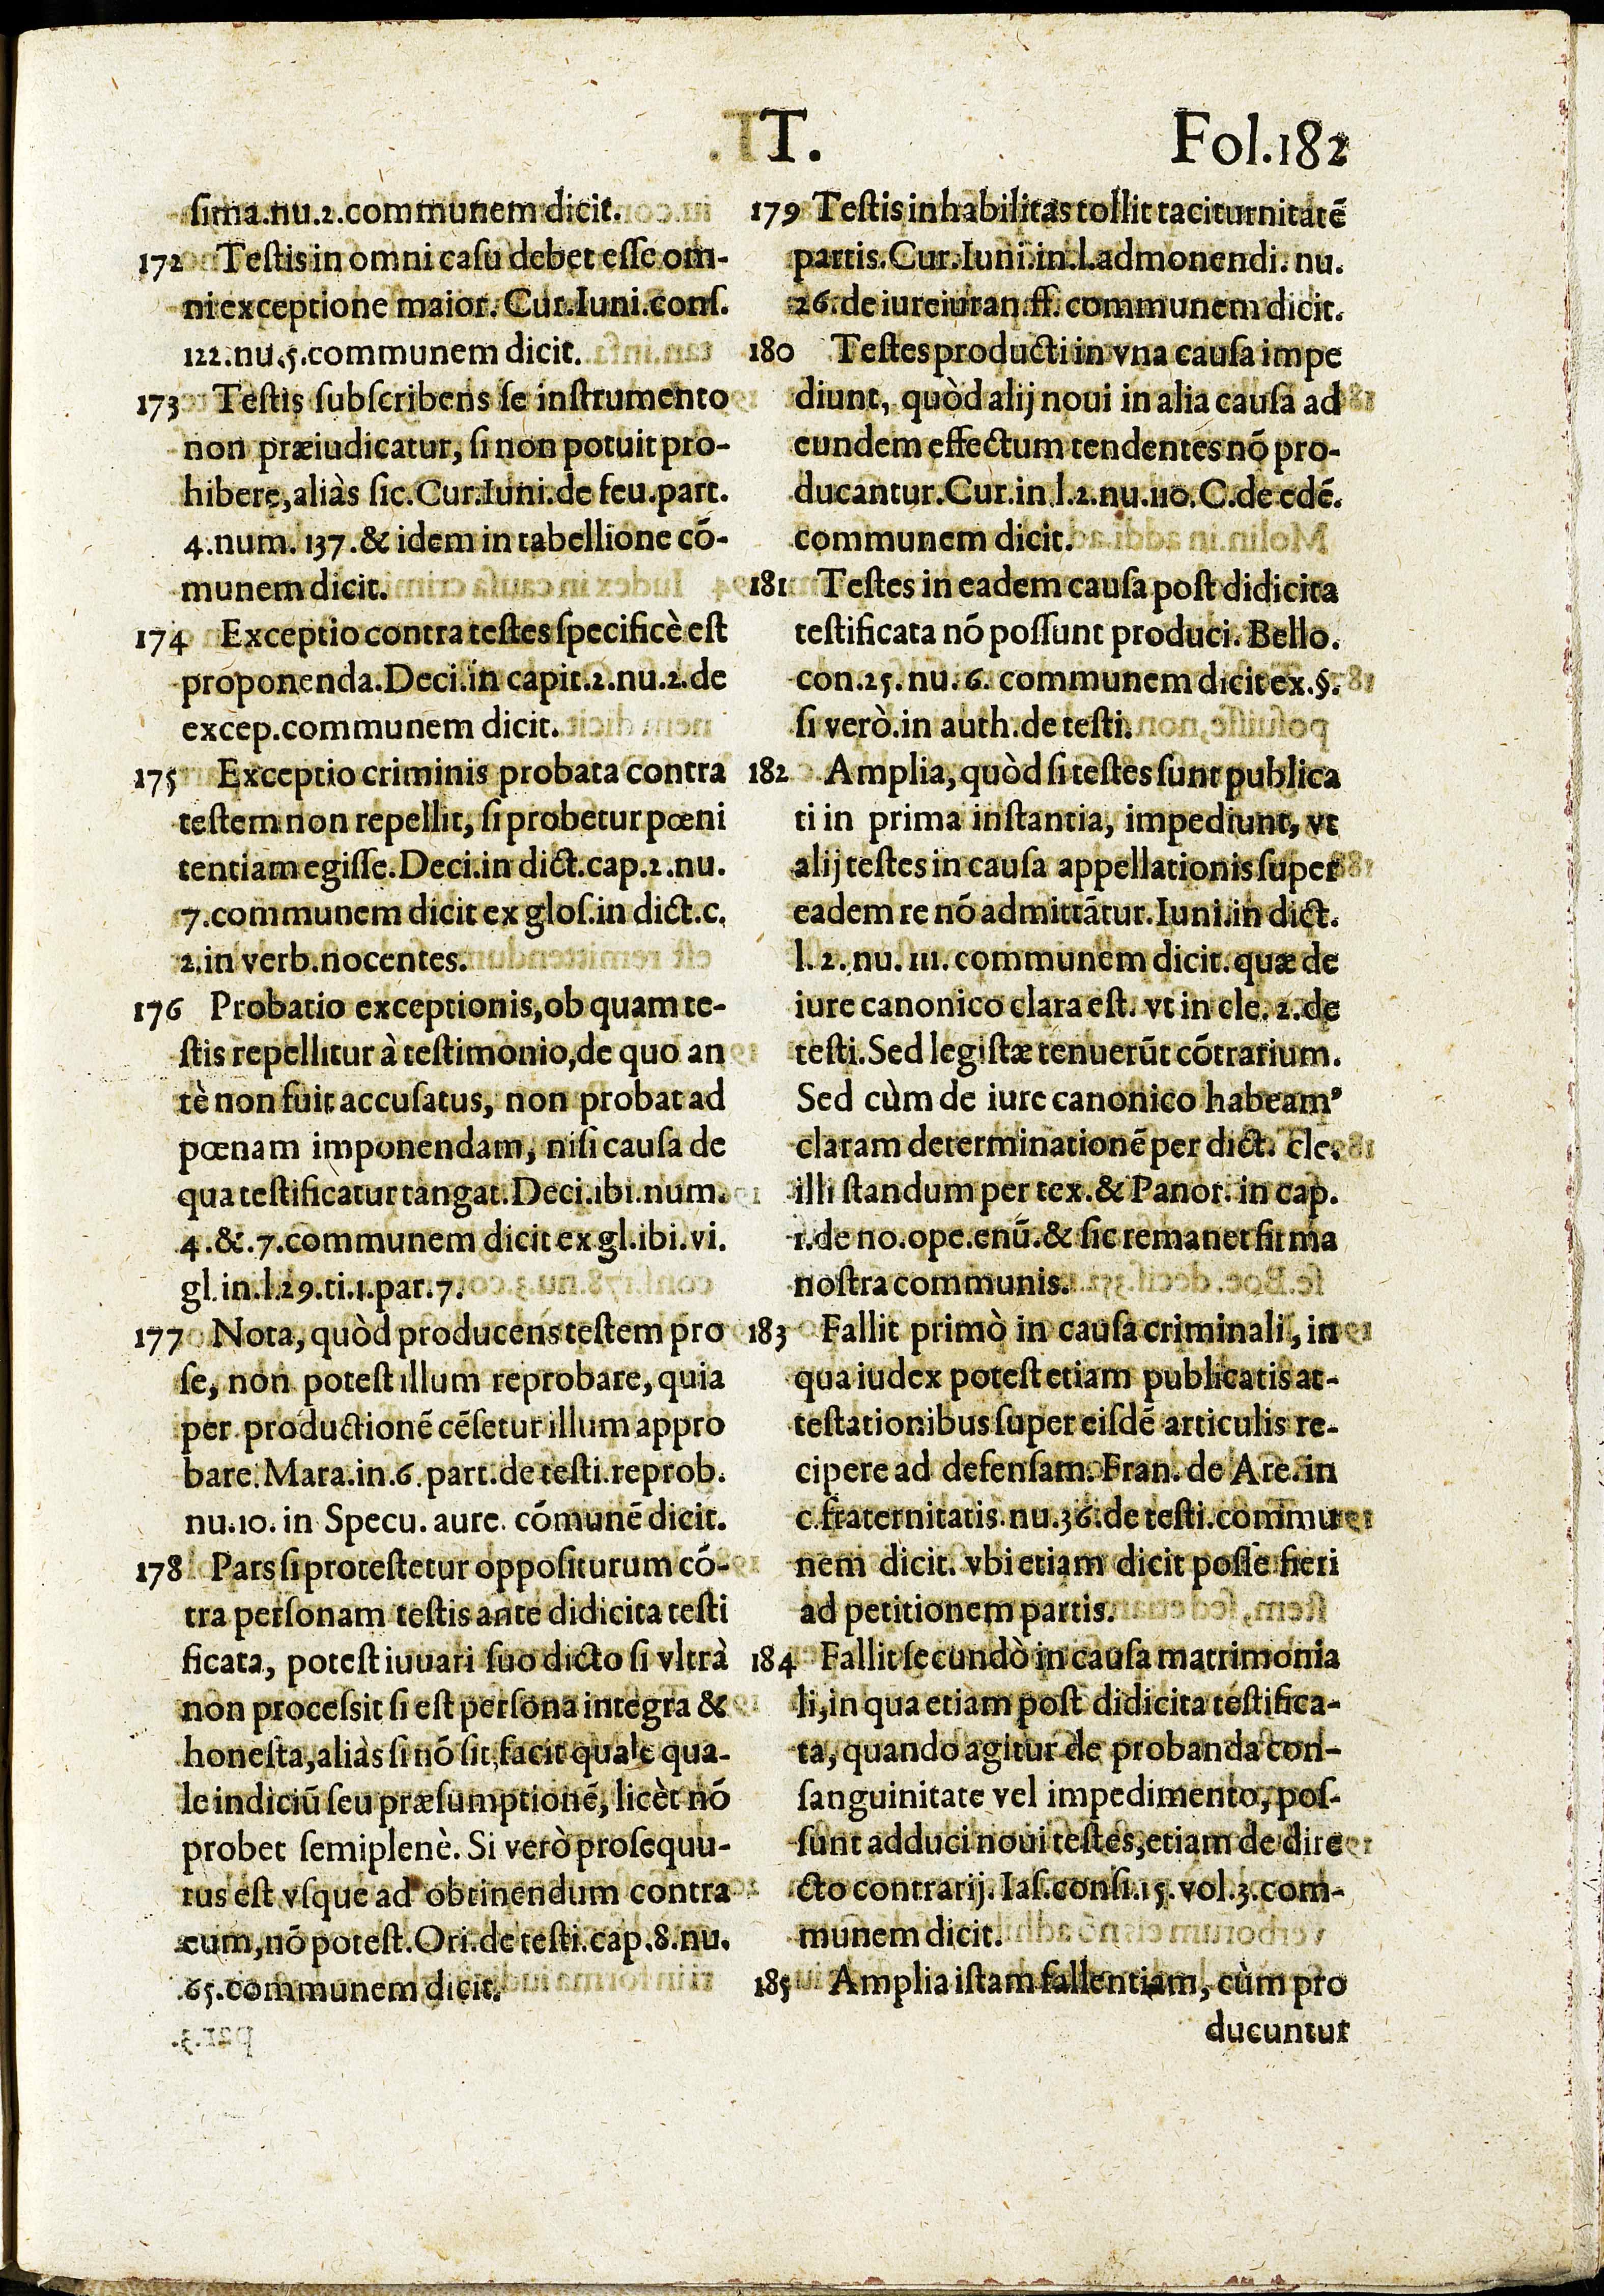 T. Fol.182
ſima.nu.2.communem dicit.
172 Teſtis in omni caſu debet eſſe om-
ni exceptione maior. Cur.Iuni.conſ.
122.nu.5.communem dicit.
173 Teſtis ſubſcribens ſe inſtrumento
non præiudicatur, ſi non potuit pro-
hibere, aliàs ſic.Cur.Iuni.de feu.part.
4.num.137.& idem in tabellione cõ-
munem dicit.
174 Exceptio contra teſtes ſpecificè eſt
proponenda.Deci.in capit.2.nu.2.de
excep.communem dicit.
175 Exceptio criminis probata contra
teſtem non repellit, ſi probetur pœni
tentiam egiſſe.Deci.in dict.cap.2.nu.
7.communem dicit ex gloſ.in dict.c.
2.in verb.nocentes.
176 Probatio exceptionis, ob quam te-
ſtis repellitur à teſtimonio, de quo an
tè non fuit accuſatus, non probat ad
pœnam imponendam, niſi cauſa de
qua teſtificatur tangat.Deci.ibi.num.
4.&.7.communem dicit ex gl.ibi.vi.
gl.in.l.29.ti.1.par.7.
177 Nota, quòd producens teſtem pro
ſe, non poteſt illum reprobare, quia
per productionẽ cẽſetur illum appro
bare.Mara.in.6.part.de teſti.reprob.
nu.10. in Specu. aure. cõmunẽ dicit.
178 Pars ſi proteſtetur oppoſiturum cõ-
tra perſonam teſtis ante didicita teſti
ficata, poteſt iuuari ſuo dicto ſi vltrà
non proceſsit ſi eſt perſona integra &
honeſta, aliàs ſi nõ ſit, facit quale qua-
le indiciũ ſeu præſumptionẽ, licèt nõ
probet ſemiplenè. Si verò proſequu-
tus eſt vſque ad obtinendum contra
eum, nõ poteſt.Ori.de teſti.cap.8.nu.
65.communem dicit.
179 Teſtis inhabilitas tollit taciturnitatẽ
partis.Cur.Iuni.in.l.admonendi. nu.
26.de iureiuran.ff. communem dicit.
180 Teſtes producti in vna cauſa impe
diunt, quòd alij noui in alia cauſa ad
eundem effectum tendentes nõ pro-
ducantur.Cur.in l.2.nu.110.C.de edẽ.
communem dicit.
181 Teſtes in eadem cauſa poſt didicita
teſtificata nõ poſſunt produci. Bello.
con.25.nu.6. communem dicit ex.§.
ſi verò.in auth.de teſti.
182 Amplia, quòd ſi teſtes ſunt publica
ti in prima inſtantia, impediunt, vt
alij teſtes in cauſa appellationis ſuper
eadem re nõ admittãtur.Iuni.in dict.
l.2. nu.111. communem dicit. quæ de
iure canonico clara eſt. vt in cle. 2. de
teſti.Sed legiſtæ tenuerũt cõtrarium.
Sed cùm de iure canonico habeam⁹
claram determinationẽ per dict. cle.
illi ſtandum per tex.& Panor. in cap.
1.de no.ope.enũ.& ſic remanet firma
noſtra communis.
183 Fallit primò in cauſa criminali, in
qua iudex poteſt etiam publicatis at-
teſtationibus ſuper eiſdẽ articulis re-
cipere ad defenſam. Fran. de Are. in
c.fraternitatis.nu.36.de teſti.commu
nem dicit. vbi etiam dicit poſſe fieri
ad petitionem partis.
184 Fallit ſecundò in cauſa matrimonia
li, in qua etiam poſt didicita teſtifica-
ta, quando agitur de probanda con-
ſanguinitate vel impedimento, poſ-
ſunt adduci noui teſtes, etiam de dire
cto contrarij. Iaſ.conſi.15.vol.3.com-
munem dicit.
185 Amplia iſtam fallentiam, cùm pro
ducuntur